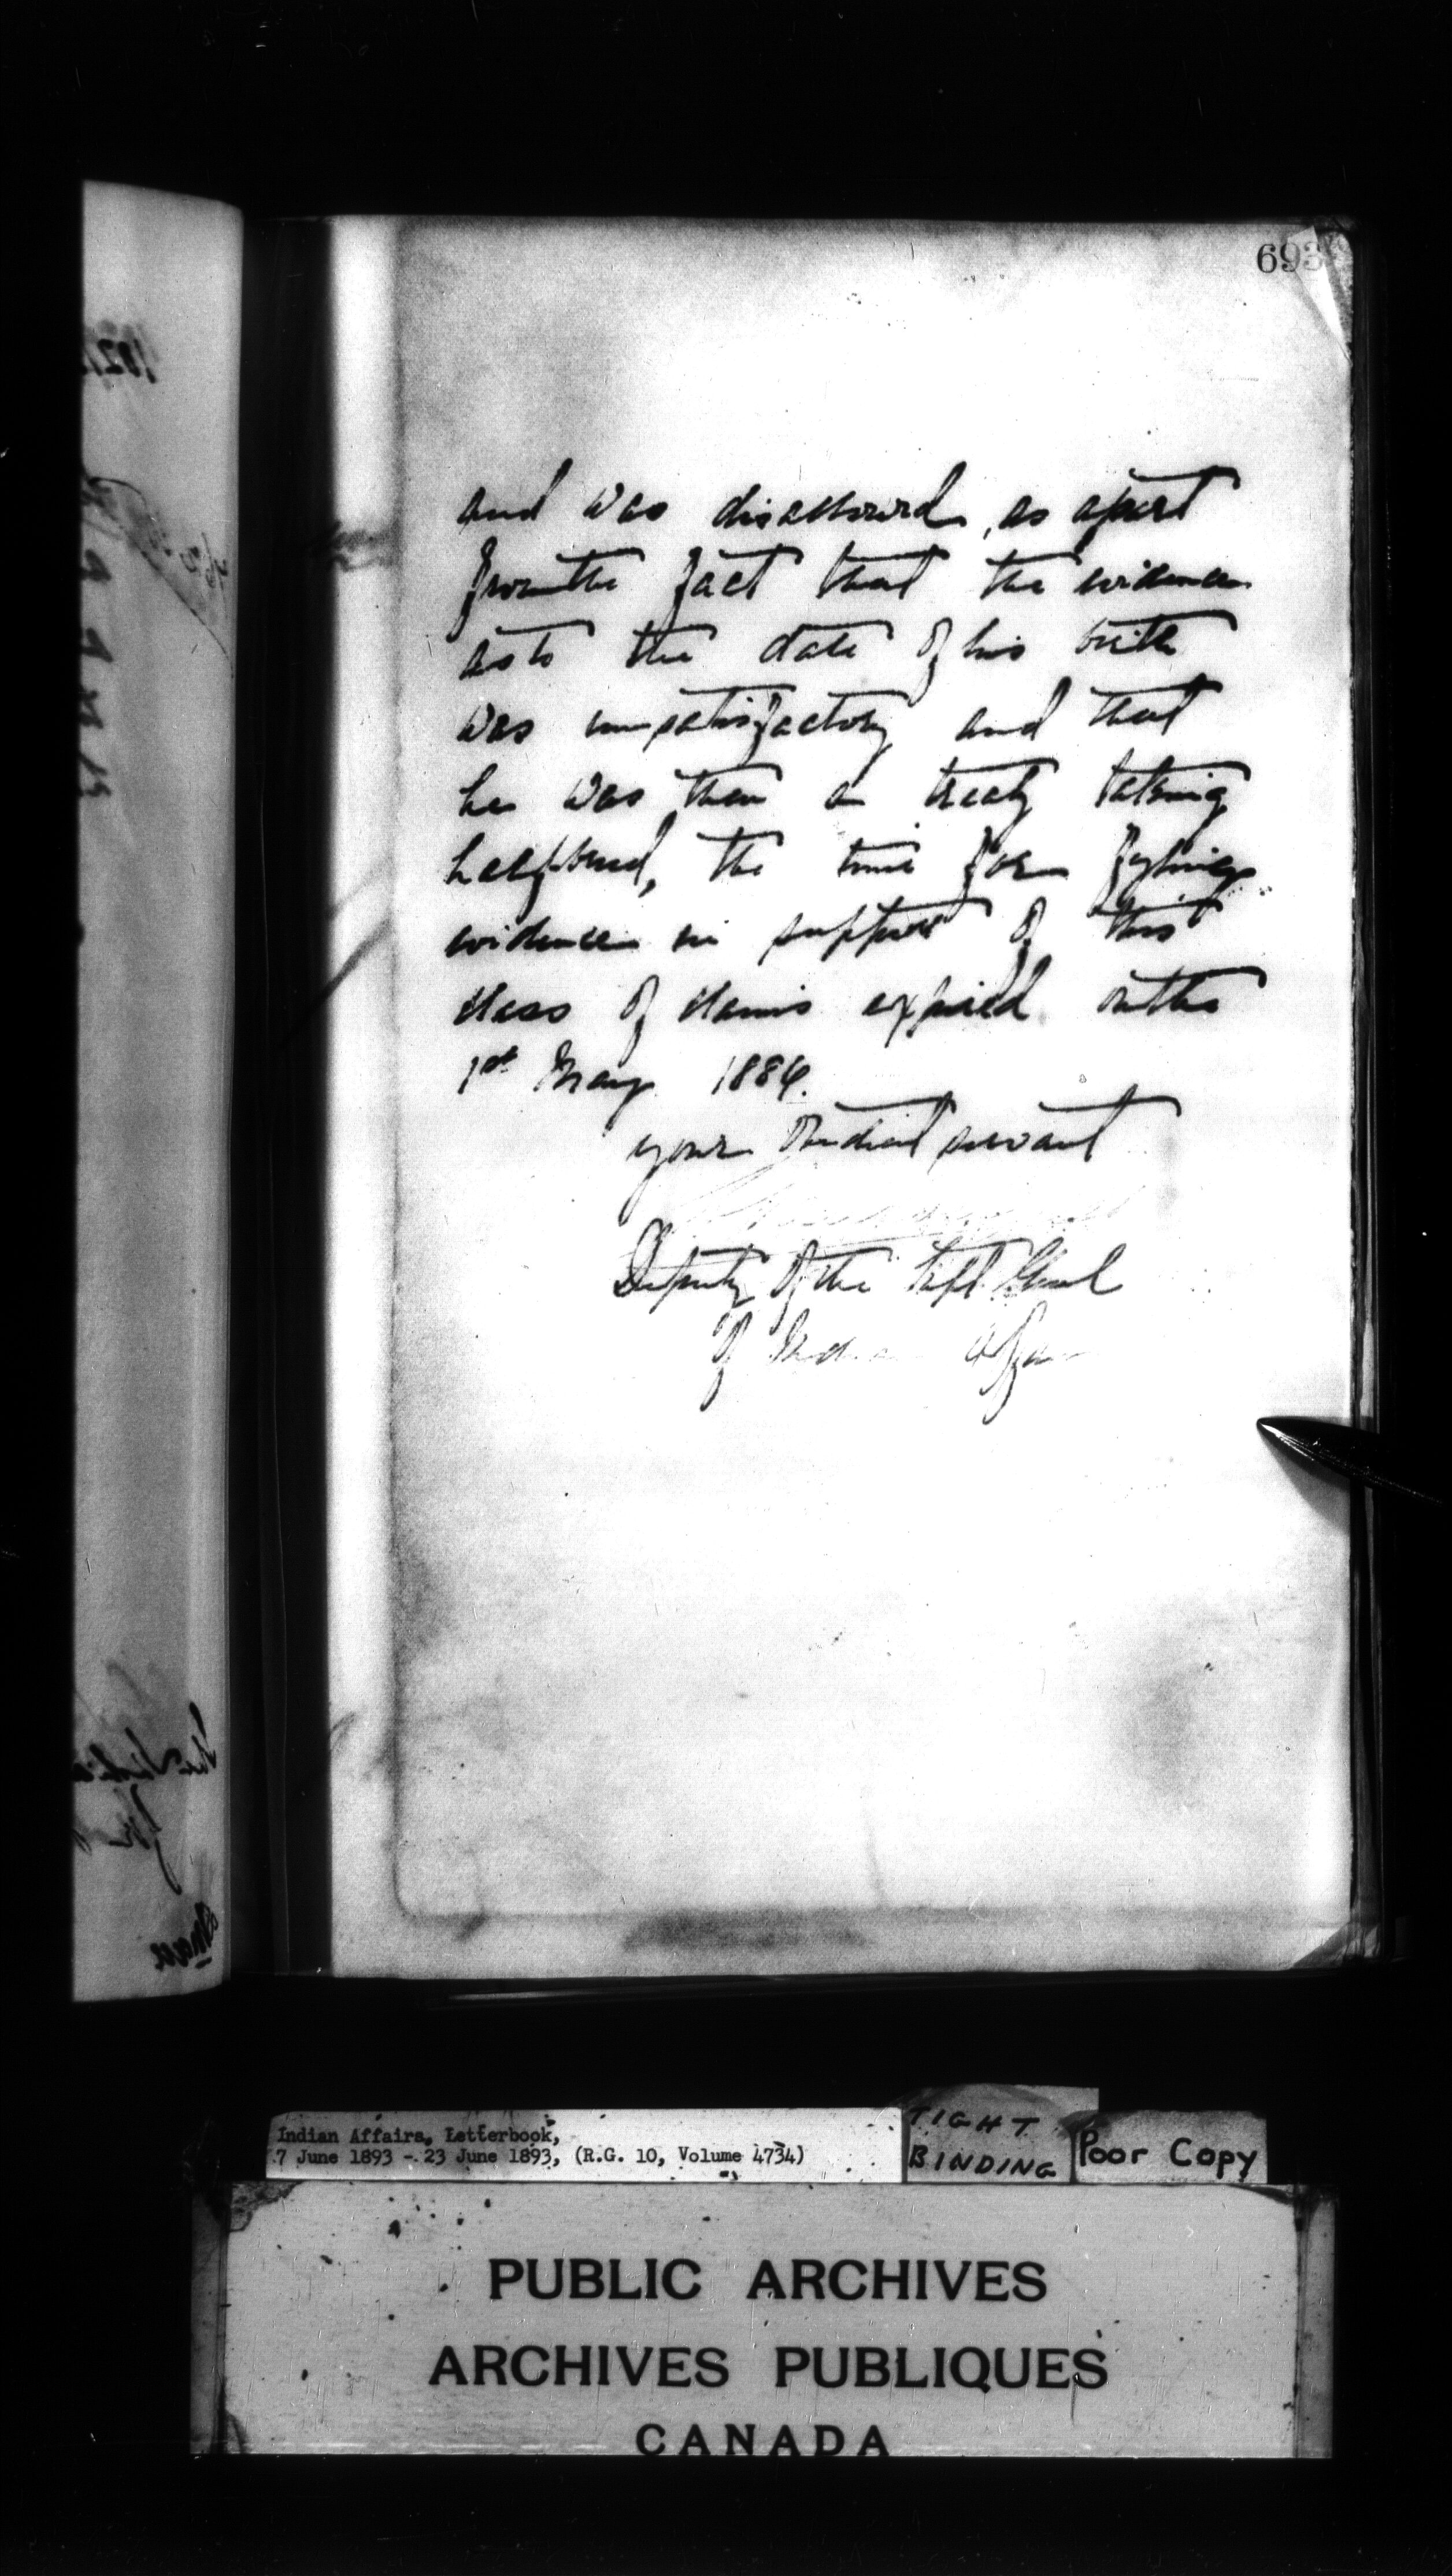 693
and was disallowed, as apart
from the fact that the evidence
as to the date of his birth
was unsatisfactory and that
he was then a treaty taking
halfbreed, the time for fyling
evidence in support of this
class of claims expired on the
1st May 1886.
your obedient servant
Deputy of the Supt. Genl
of Indian Affairs
Indian Affairs, Letterbook,
7 June 1893 - 23 June 1893, (R.G. 10, Volume 4734)
TIGHT
BINDING
Poor Copy
PUBLIC ARCHIVES
ARCHIVES PUBLIQUES
CANADA